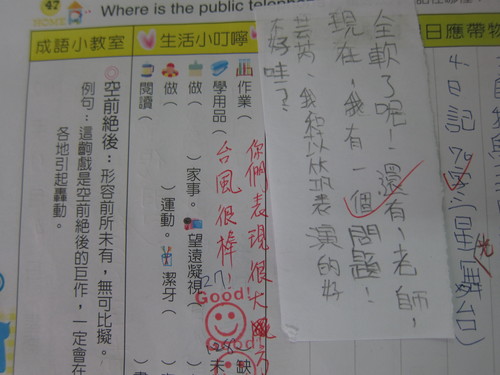 47
Where is the public telep
日應帶物
生活小叮嚀
成語小教室
4日記
星光舞台)
全軟了呢!還有,老師,
現在,我有一個問題!
表演的好
不好哇?
你們表現很大方
台風很棒!
作業(
學用品(
做( )家事。望遠凝視(
做( )運動。潔牙(
閱讀(
Good!
Good
空前絕後:形容前所未有,無可比擬。
例句:這齣戲是空前絕後的巨作,一定會在
各地引起轟動。